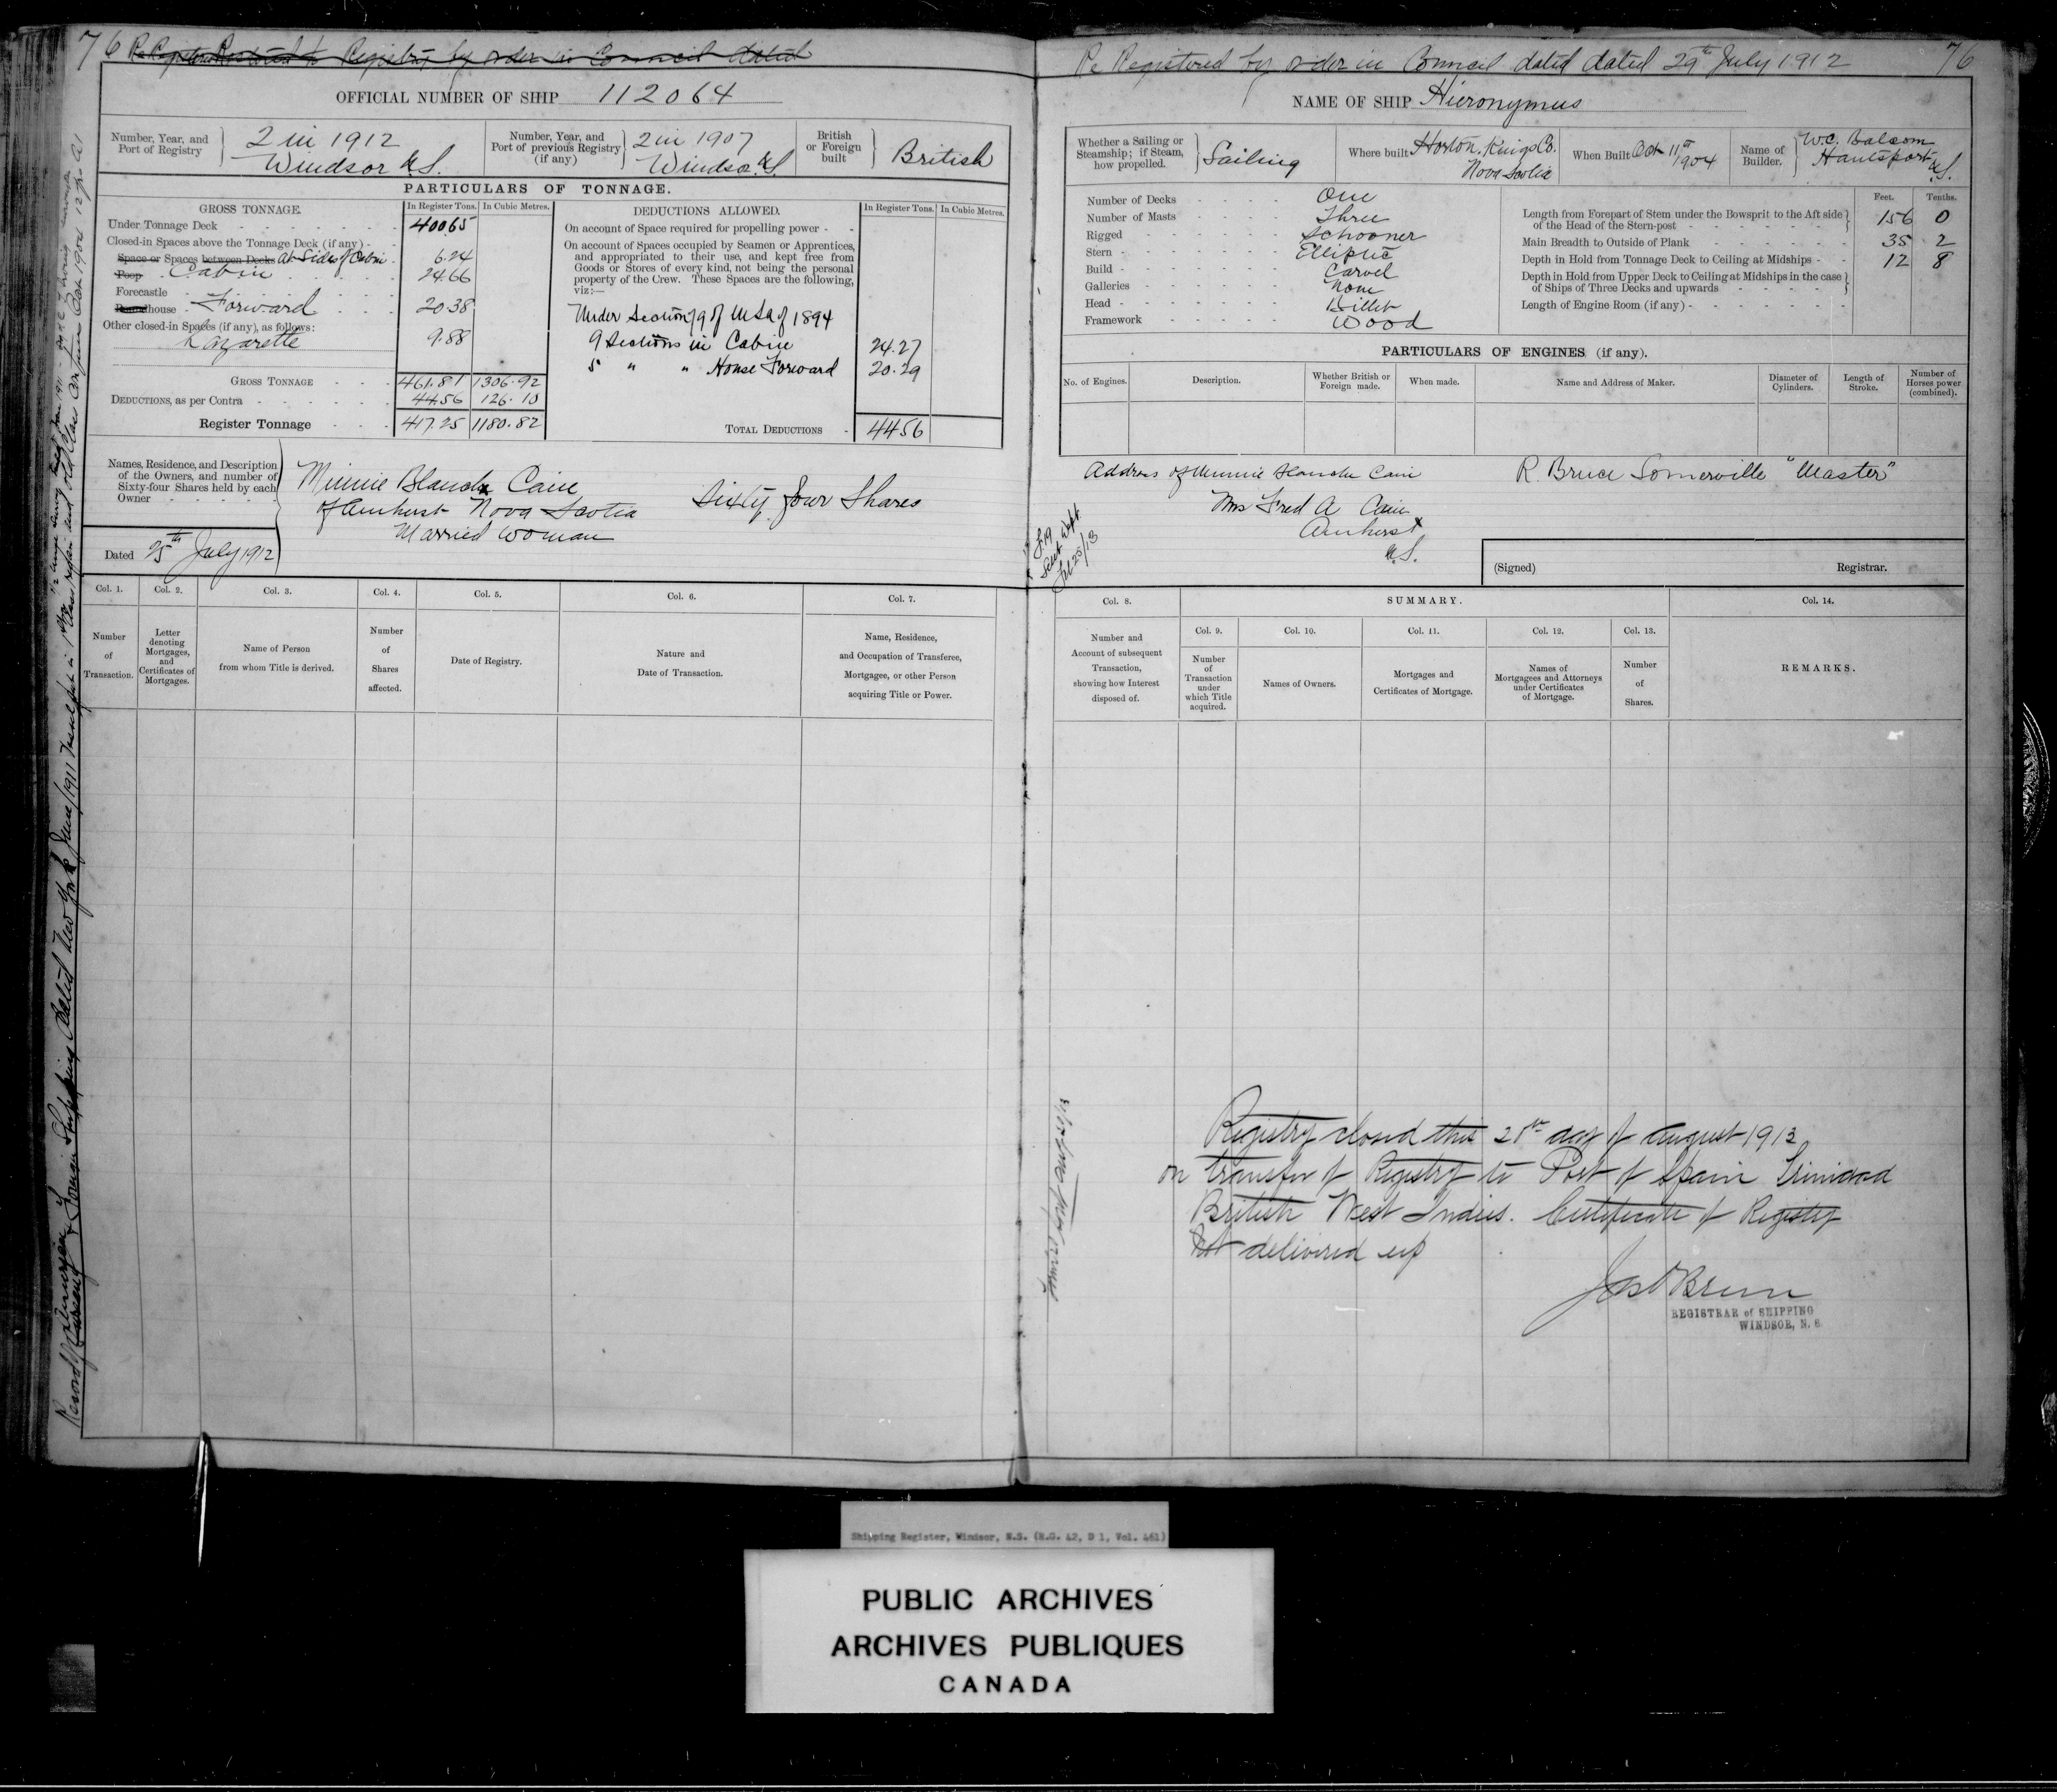 76 Re Registered Restored to Registry by order in Council dated
OFFICIAL NUMBER OF SHIP 112064
Number, Year, and Port of Registry } 2 in 1912 Windsor N.S.
Number, Year, and Port of previous Registry (if any) } 2 in 1907 Windsor N.S.
British or Foreign built } British
PARTICULARS OF TONNAGE.
GROSS TONNAGE. In Register Tons. In Cubic Metres.
Under Tonnage Deck 400.65
Closed-in Spaces above the Tonnage Deck (if any)
Space or Spaces between Decks At Sides of Cabin 6.24
Poop Cabin 24.66
Forecastle
Roundhouse Forward 20.38
Other closed-in Spaces (if any), as follows:
Lazarette 9.88
GROSS TONNAGE 461.81 1306.92
DEDUCTIONS, as per Contra 44.56 126.10
Register Tonnage 417.25 1180.82
DEDUCTIONS ALLOWED. In Register Tons. In Cubic Metres.
On account of Space required for propelling power
On account of Spaces occupied by Seamen or Apprentices,
and appropriated to their use, and kept free from
Goods or Stores of every kind, not being the personal
property of the Crew. These Spaces are the following,
viz:—
Under Section 79 of M S A of 1894
9 Sections in Cabin 24.27
5 " " House Forward 20.29
TOTAL DEDUCTIONS 44.56
Names, Residence, and Description
of the Owners, and number of
Sixty-four Shares held by each
Owner
Minnie Blanche Cain
of Amherst Nova Scotia Sixty four Shares
Married Woman
Dated 25th July 1912
Col. 1. Col. 2. Col. 3. Col. 4. Col. 5. Col. 6. Col. 7.
Number of Transaction.
Letter denoting Mortgages, and Certificates of Mortgages.
Name of Person from whom Title is derived.
Number of Shares affected.
Date of Registry.
Nature and Date of Transaction.
Name, Residence, and Occupation of Transferee, Mortgagee, or other Person acquiring Title or Power.
Re Registered by order in Council dated dated 29th July 1912 76
NAME OF SHIP Hieronymus
Whether a Sailing or Steamship; if Steam, how propelled. } Sailing
Where built Horton, Kings Co. Nova Scotia
When Built Oct 11th 1904
Name of Builder. } W.C. Balcom Hantsport N.S.
Number of Decks One
Number of Masts Three
Rigged Schooner
Stern Elliptic
Build Carvel
Galleries None
Head Billet
Framework Wood
Feet. Tenths.
Length from Forepart of Stem under the Bowsprit to the Aft side
of the Head of the Stern-post 156 0
Main Breadth to Outside of Plank 35 2
Depth in Hold from Tonnage Deck to Ceiling at Midships 12 8
Depth in Hold from Upper Deck to Ceiling at Midships in the case
of Ships of Three Decks and upwards
Length of Engine Room (if any)
PARTICULARS OF ENGINES (if any).
No. of Engines. Description. Whether British or Foreign made. When made. Name and Address of Maker. Diameter of Cylinders. Length of Stroke. Number of Horses power (combined).
Address of Minnie Blanche Cain R. Bruce Somerville "Master"
Mrs Fred A Cain
Amherst
N.S.
(Signed) Registrar.
Col. 8. SUMMARY. Col. 14.
Col. 9. Col. 10. Col. 11. Col. 12. Col. 13.
Number and Account of subsequent Transaction, showing how Interest disposed of.
Number of Transaction under which Title acquired.
Names of Owners.
Mortgages and Certificates of Mortgage.
Names of Mortgagees and Attorneys under Certificates of Mortgage.
Number of Shares.
REMARKS.
Registry closed this 28th day of August 1913
on transfer of Registry to Port of Spain Trinidad
British West Indies. Certificate of Registry
Not delivered up
REGISTRAR of SHIPPING
WINDSOR, N.S.
Shipping Register, Windsor, N.S. (R.G. 42, D 1, Vol. 461)
PUBLIC ARCHIVES
ARCHIVES PUBLIQUES
CANADA